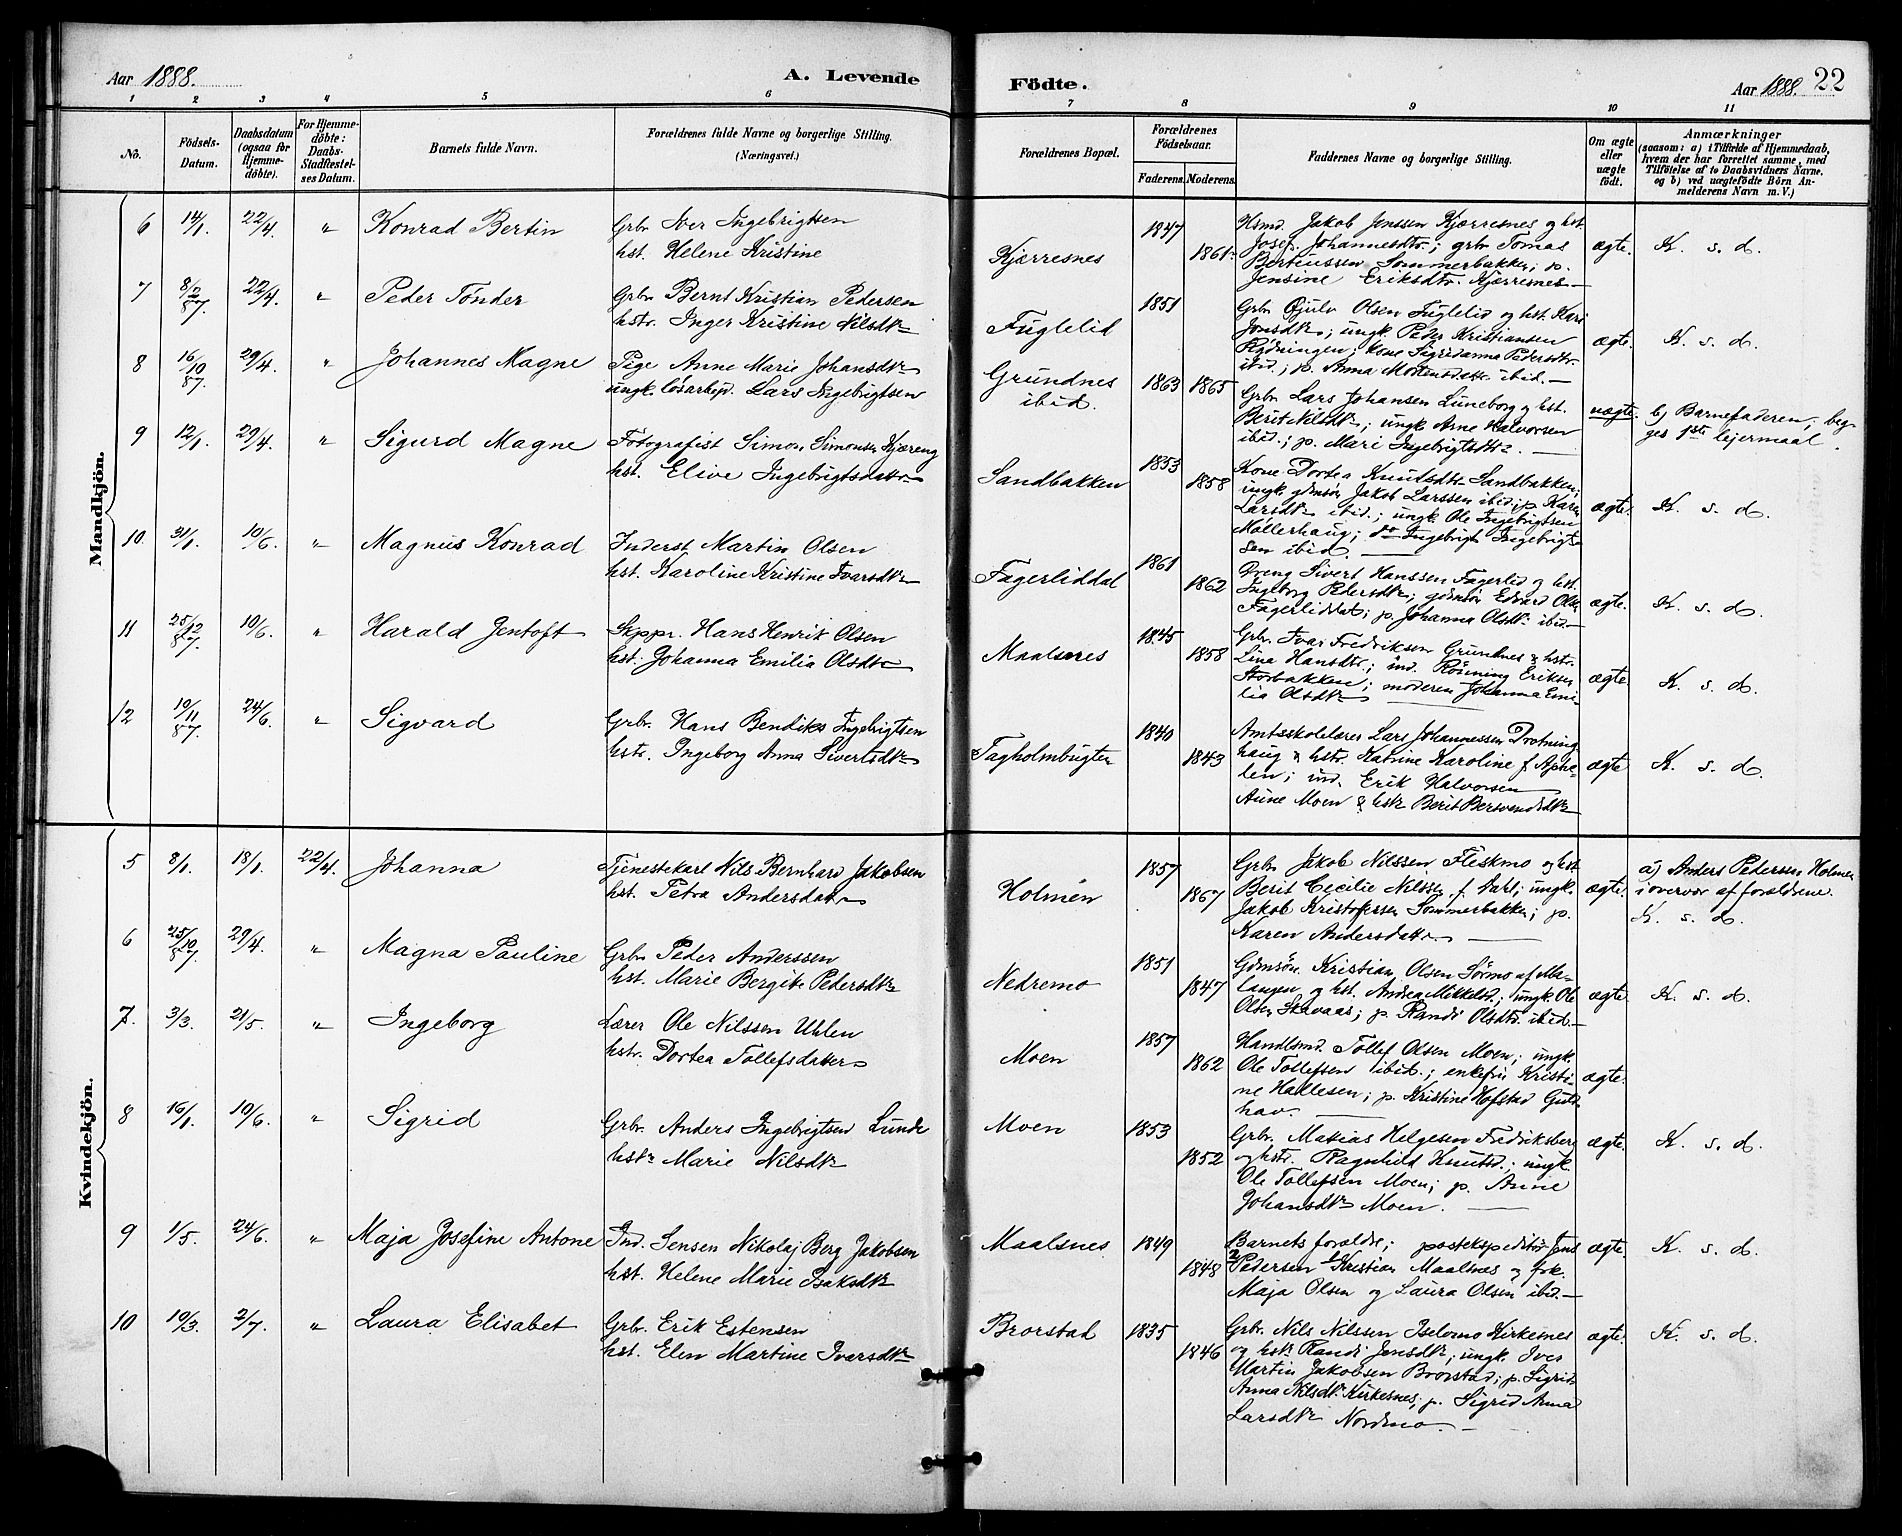 Aar 1888.
A. Levende
1 2 3 4 5 6
No.
Födsels-
Datum.
Daabsdatum
(ogsaa for
Hjemme-
döbte).
For Hjemme-
döbte:
Daabs-
Stadfæstel-
ses Datum.
Barnets fulde Navn.
Forældrenes fulde Navne og borgerlige Stilling.
(Næringsvei.)
Mandkjön.
6 14/1. 22/4. " Konrad Bertin Grbr. Iver Ingebrigtsen
hst. Helene Kristine
7 8/2 87. 22/4. " Peder Tönder Grbr. Bernt Kristian Pedersen
hstr. Inger Kristine Nilsdtr
8 16/10 87. 29/4. " Johannes Magne Pige Anne Marie Johansdtr
ungk. lösarbejd. Lars Ingebrigtsen
9 12/1. 29/4. " Sigurd Magne Fotografist Simon Simonsen Kjæreng
hst. Elive Ingebrigtsdatter
10. 31/1. 10/6. " Magnus Konrad Inderst Martin Olsen
hst. Karoline Kristine Ivarsdtr
11 25/12 87. 10/6. " Harald Jentoft Skppr. Hans Henrik Olsen
hst. Johanna Emilia Olsdtr
12 19/11 87. 24/6. " Sigvard Grbr. Hans Bendiks Ingebrigtsen
hstr. Ingeborg Anna Sivertsdtr
Kvindekjön.
5 8/1. 18/1. 22/4. Johanna Tjenestekarl Nils Bernhard Jakobsen
hst. Petra Andersdatr
6 25/10 87. 29/4. " Magna Pauline Grbr. Peder Anderssen
hst. Marie Bergitte Pedersdtr
7. 3/3. 21/5. " Ingeborg Lærer Ole Nilssen Uhlen
hstr. Dortea Tollefsdatter
8 16/1. 10/6. " Sigrid Grbr. Anders Ingebrigtsen Lunde
hstr Marie Nilsdtr
9 1/5. 24/6. " Maja Josefine Antone Ind. Jensen Nikolaj Berg Jakobsen
hst. Helene Marie Isaksdtr
10 19/3. 2/7. " Laura Elisabet Grbr. Erik Estensen
hst. Elen Martine Ivarsdtr
Födte.
Aar 1888. 22
7 8 9 10 11
Forældrenes Bopæl.
Forældrenes
Födselsaar.
Faderens. Moderens.
Faddernes Navne og borgerlige Stilling.
Om ægte
eller
uægte
födt.
Anmærkninger
(saasom: a) i Tilfælde af Hjemmedaab,
hvem der har forrettet samme, med
Tilföielse af to Daabsvidners Navne,
og b) ved uægtefödte Börn An-
melderens Navn m. V.)
Kjærresnes 1847 1861 ægte. K. s. d.
Hsmd. Jakob Jenssen Kjærresnes og hst.
Josef. Johannesdtr.; grbr Tomas
Bertinussen Sommerbakken; p.
Jensine Eriksdtr. Kjærresnes
Fuglelid 1851 ægte. K. s. d.
Grbr. Gjulv Olsen Fuglelid og hst. Kari
Jonsdtr; ungk. Peder Kristiansen
Kone Sigridanna Pedersdtr.
ibid.; p. Anna Mortensdatr ibid.
Grundnes
ibid. 1863 1865 uægte. b) Barnefaderen, beg-
ges 1ste lejermaal.
Grbr. Lars Johansen Luneborg og hst.
Berit Nilsdtr; ungk. Arne Halvorsen
ibid.; p. Mari Ingebrigtsdtr
Sandbakken 1853 1858 ægte. K. s. d.
Kone Dortea Knutsdtr Sandbakken;
ungk. gdmsön Jakob Larssen ibid; p. Karen
Larsdtr ibid.; ungk. Ole Ingebrigtsen
Møllerhaug; do Ingebrigt Ingebrigt-
sen ibid.
Fagerliddal 1861 1862 ægte. K. s. d.
Dreng Sivert Hanssen Fagerlid og hst.
Ingeborg Pedersdtr; gdmsön Edvard Ols.
Fagerliddal; p. Johanna Olsdtr ibid.
Maalsnes 1845 1858 ægte. K. s. d.
Grbr. Ivar Fredriksen Grundnes & hstr.
Lina Hansdtr.; ind. Rönning Eriksen
Storbakken; moderen Johanna Emi-
lia Olsdtr
Tagholmbugten 1840 1843 ægte K. s. d.
Amtsskolelærer Lars Johannessen Drotning-
haug & hstr. Katrine Karoline f. Aphe-
len; ind. Erik Halvorsen
Aune Moen & hstr Berit Bersvendsdtr
Holmen 1857 1867 ægte. a) Anders Pedersen Holmen
i overvær af forældrene.
K. s. d.
Grbr Jakob Nilssen Fleskmo og hst
Berit Cecilie Nilssen f. Aarl; ungk.
Jakob Kristofersen Sommerbakken; p.
Karen Andersdatr.
Nedremo 1851 1847 ægte. K. s. d.
Gdmsön. Kristian Olsen Sörmo af Ma-
langen og hst. Andrea Mikkelsd.; ungk. Ole
Olsen Stavaas; p. Randi Olsdtr. ibid.
Moen 1857 1862 ægte.
Handlsmd. Tollef Olsen Moen; ungk.
Ole Tollefsen ibid.; enkefru Kristi-
ne Hallesen; p. Kristine Hofstad Guld-
hav.
Moen 1853 1852 ægte. K. s. d.
Grbr. Matias Helgesen Fredriksberg
og hstr. Ragnhild Knutsd.; ungk.
Ole Tollefsen Moen; p. Anne
Johansdtr Moen.
Maalsnes 1849 1848 ægte. K. s. d.
Barnets forældre; postekspeditör Jens
2 Pedersen 1 Kristian Maalsnes og frk.
Maja Olsen og Laura Olsen ibid.
Brorstad 1835 1846 ægte. K. s. d.
Grbr. Nils Nilssen Iselvmo Kirkesnes
og hstr Randi Jensdtr; ungk. Iver
Martin Jakobsen Brorstad; p. Sigrid
Anna Nilsdtr Kirkesnes, p. Sigrid Anna
Larsdtr Nordmo.